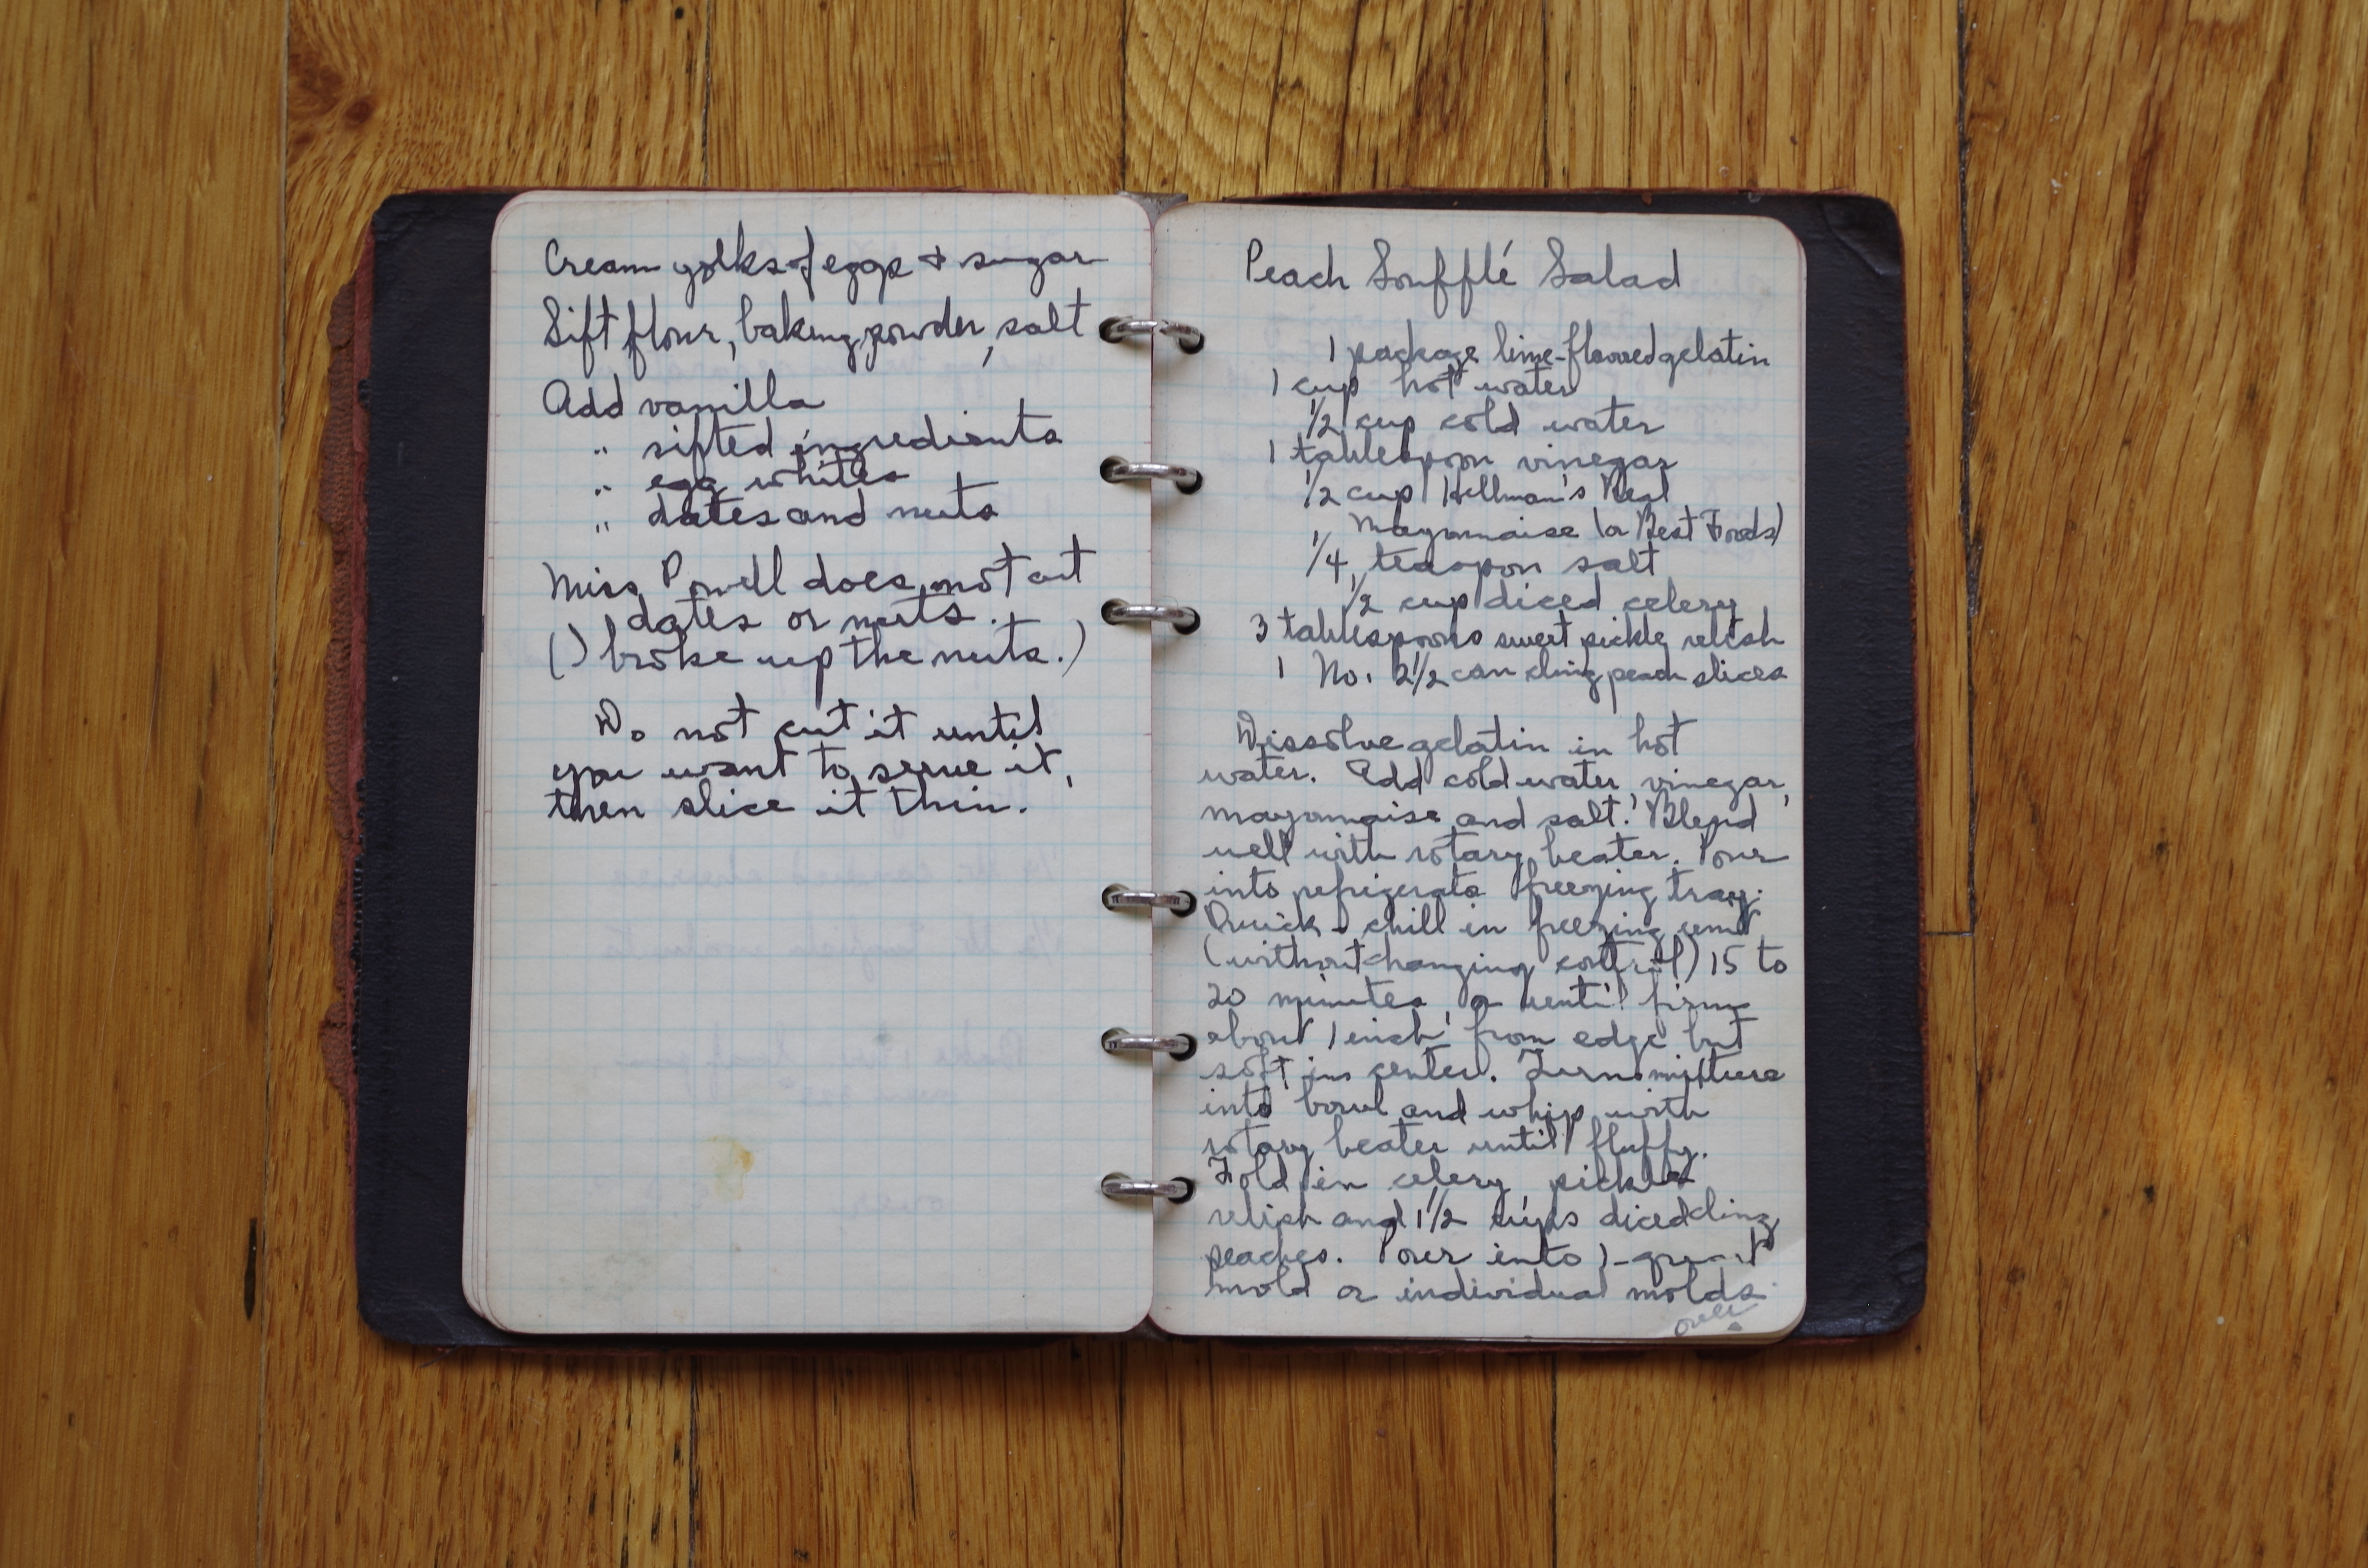 Cream yolks of eggs & sugar
Sift flour, baking powder, salt
Add vanilla
" sifted ingredients
" egg whites
" dates and nuts
Miss Powell does not cut
dates or nuts.
(I broke up the nuts.)
Do not cut it until
you want to serve it,
then slice it thin.
Peach Soufflé Salad
1 package lime-flavored gelatin
1 cup hot water
1/2 cup cold water
1 tablespoon vinegar
1/2 cup Hellman's Real
Mayonnaise (or Best Foods)
1/4 teaspoon salt
1/2 cup diced celery
3 tablespoons sweet pickle relish
1 No. 2 1/2 can cling peach slices
Dissolve gelatin in hot
water. Add cold water, vinegar,
mayonnaise and salt. Blend
well with rotary beater. Pour
into refrigerator freezing tray.
Quick-chill in freezing unit
(without changing control) 15 to
20 minutes, or until firm
about 1 inch from edge but
soft in center. Turn mixture
into bowl and whip with
rotary beater until fluffy.
Fold in celery, pickle
relish and 1 1/2 cups diced cling
peaches. Pour into 1-quart
mold or individual molds.
over